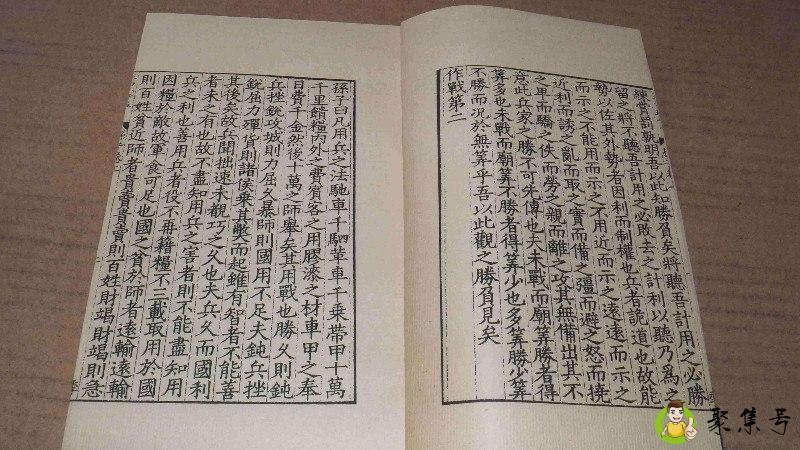 練賞罰孰明吾以此知勝負矣將聽吾計用之必勝
留之將不聽吾計用之必敗去之計利以聽乃爲之
勢以佐其外勢者因利而制權也兵者詭道也故能
而示之不能用而示之不用近而示之遠遠而示之
近利而誘之亂而取之實而備之彊而避之怒而撓
之卑而驕之佚而勞之親而離之攻其無備出其不
意此兵家之勝不可先傳也夫未戰而廟筭勝者得
筭多也未戰而廟筭不勝者得筭少也多筭勝少筭
不勝而況於無筭乎吾以此觀之勝負見矣
作戰第二
孫子曰凡用兵之法馳車千駟革車千乘帶甲十萬
千里饋糧内外之費賓客之用膠漆之材車甲之奉
日費千金然後十萬之師舉矣其用戰也勝久則鈍
兵挫銳攻城則力屈久暴師則國用不足夫鈍兵挫
銳屈力殫貨則諸侯乘其弊而起雖有智者不能善
其後矣故兵聞拙速未覩巧之久也夫兵久而國利
者未之有也故不盡知用兵之害者則不能盡知用
兵之利也善用兵者役不再籍糧不三載取用於國
因糧於敵故軍食可足也國之貧於師者遠輸遠輸
則百姓貧近師者貴賣貴賣則百姓財竭財竭則急
聚集号